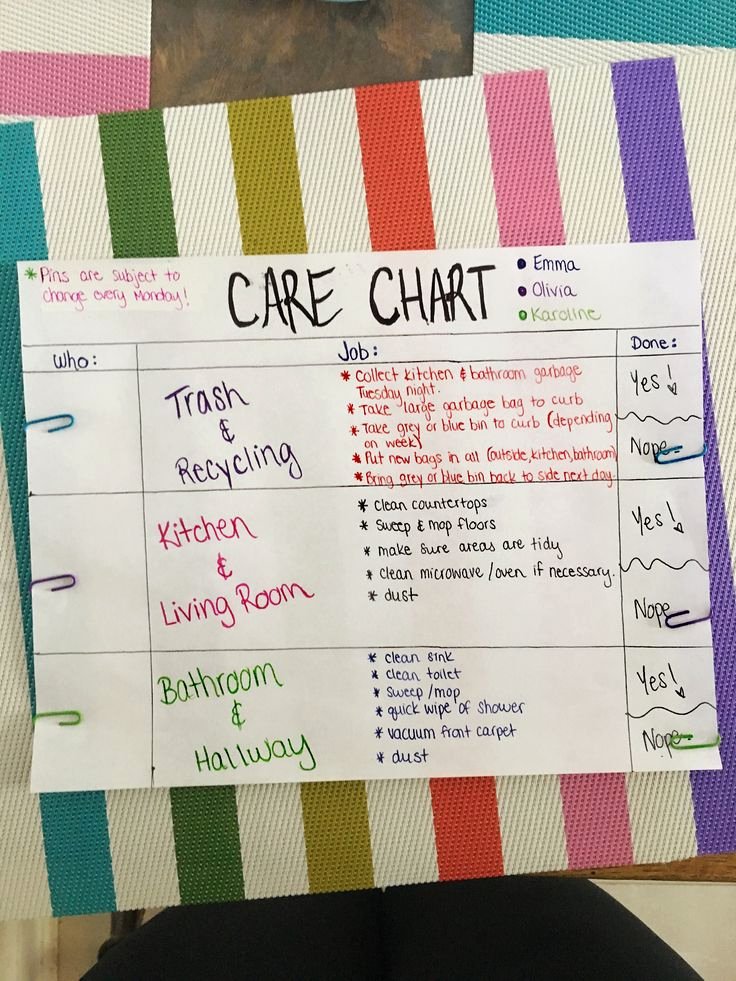 * Pins are subject to
change every Monday!
CARE CHART
• Emma
• Olivia
• Karoline
Who:
Job:
Done:
Trash
&
Recycling
* Collect kitchen & bathroom garbage
Tuesday night.
* Take large garbage bag to curb
* Take grey or blue bin to curb (depending
on week)
* Put new bags in all (outside, kitchen, bathroom)
* Bring grey or blue bin back to side next day.
Yes!
Nope
Kitchen
&
Living Room
* clean countertops
* sweep & mop floors
* make sure areas are tidy
* clean microwave / oven if necessary.
* dust
Yes!
Nope
Bathroom
&
Hallway
* clean sink
* clean toilet
* sweep / mop
* quick wipe of shower
* vacuum front carpet
* dust
Yes!
Nope